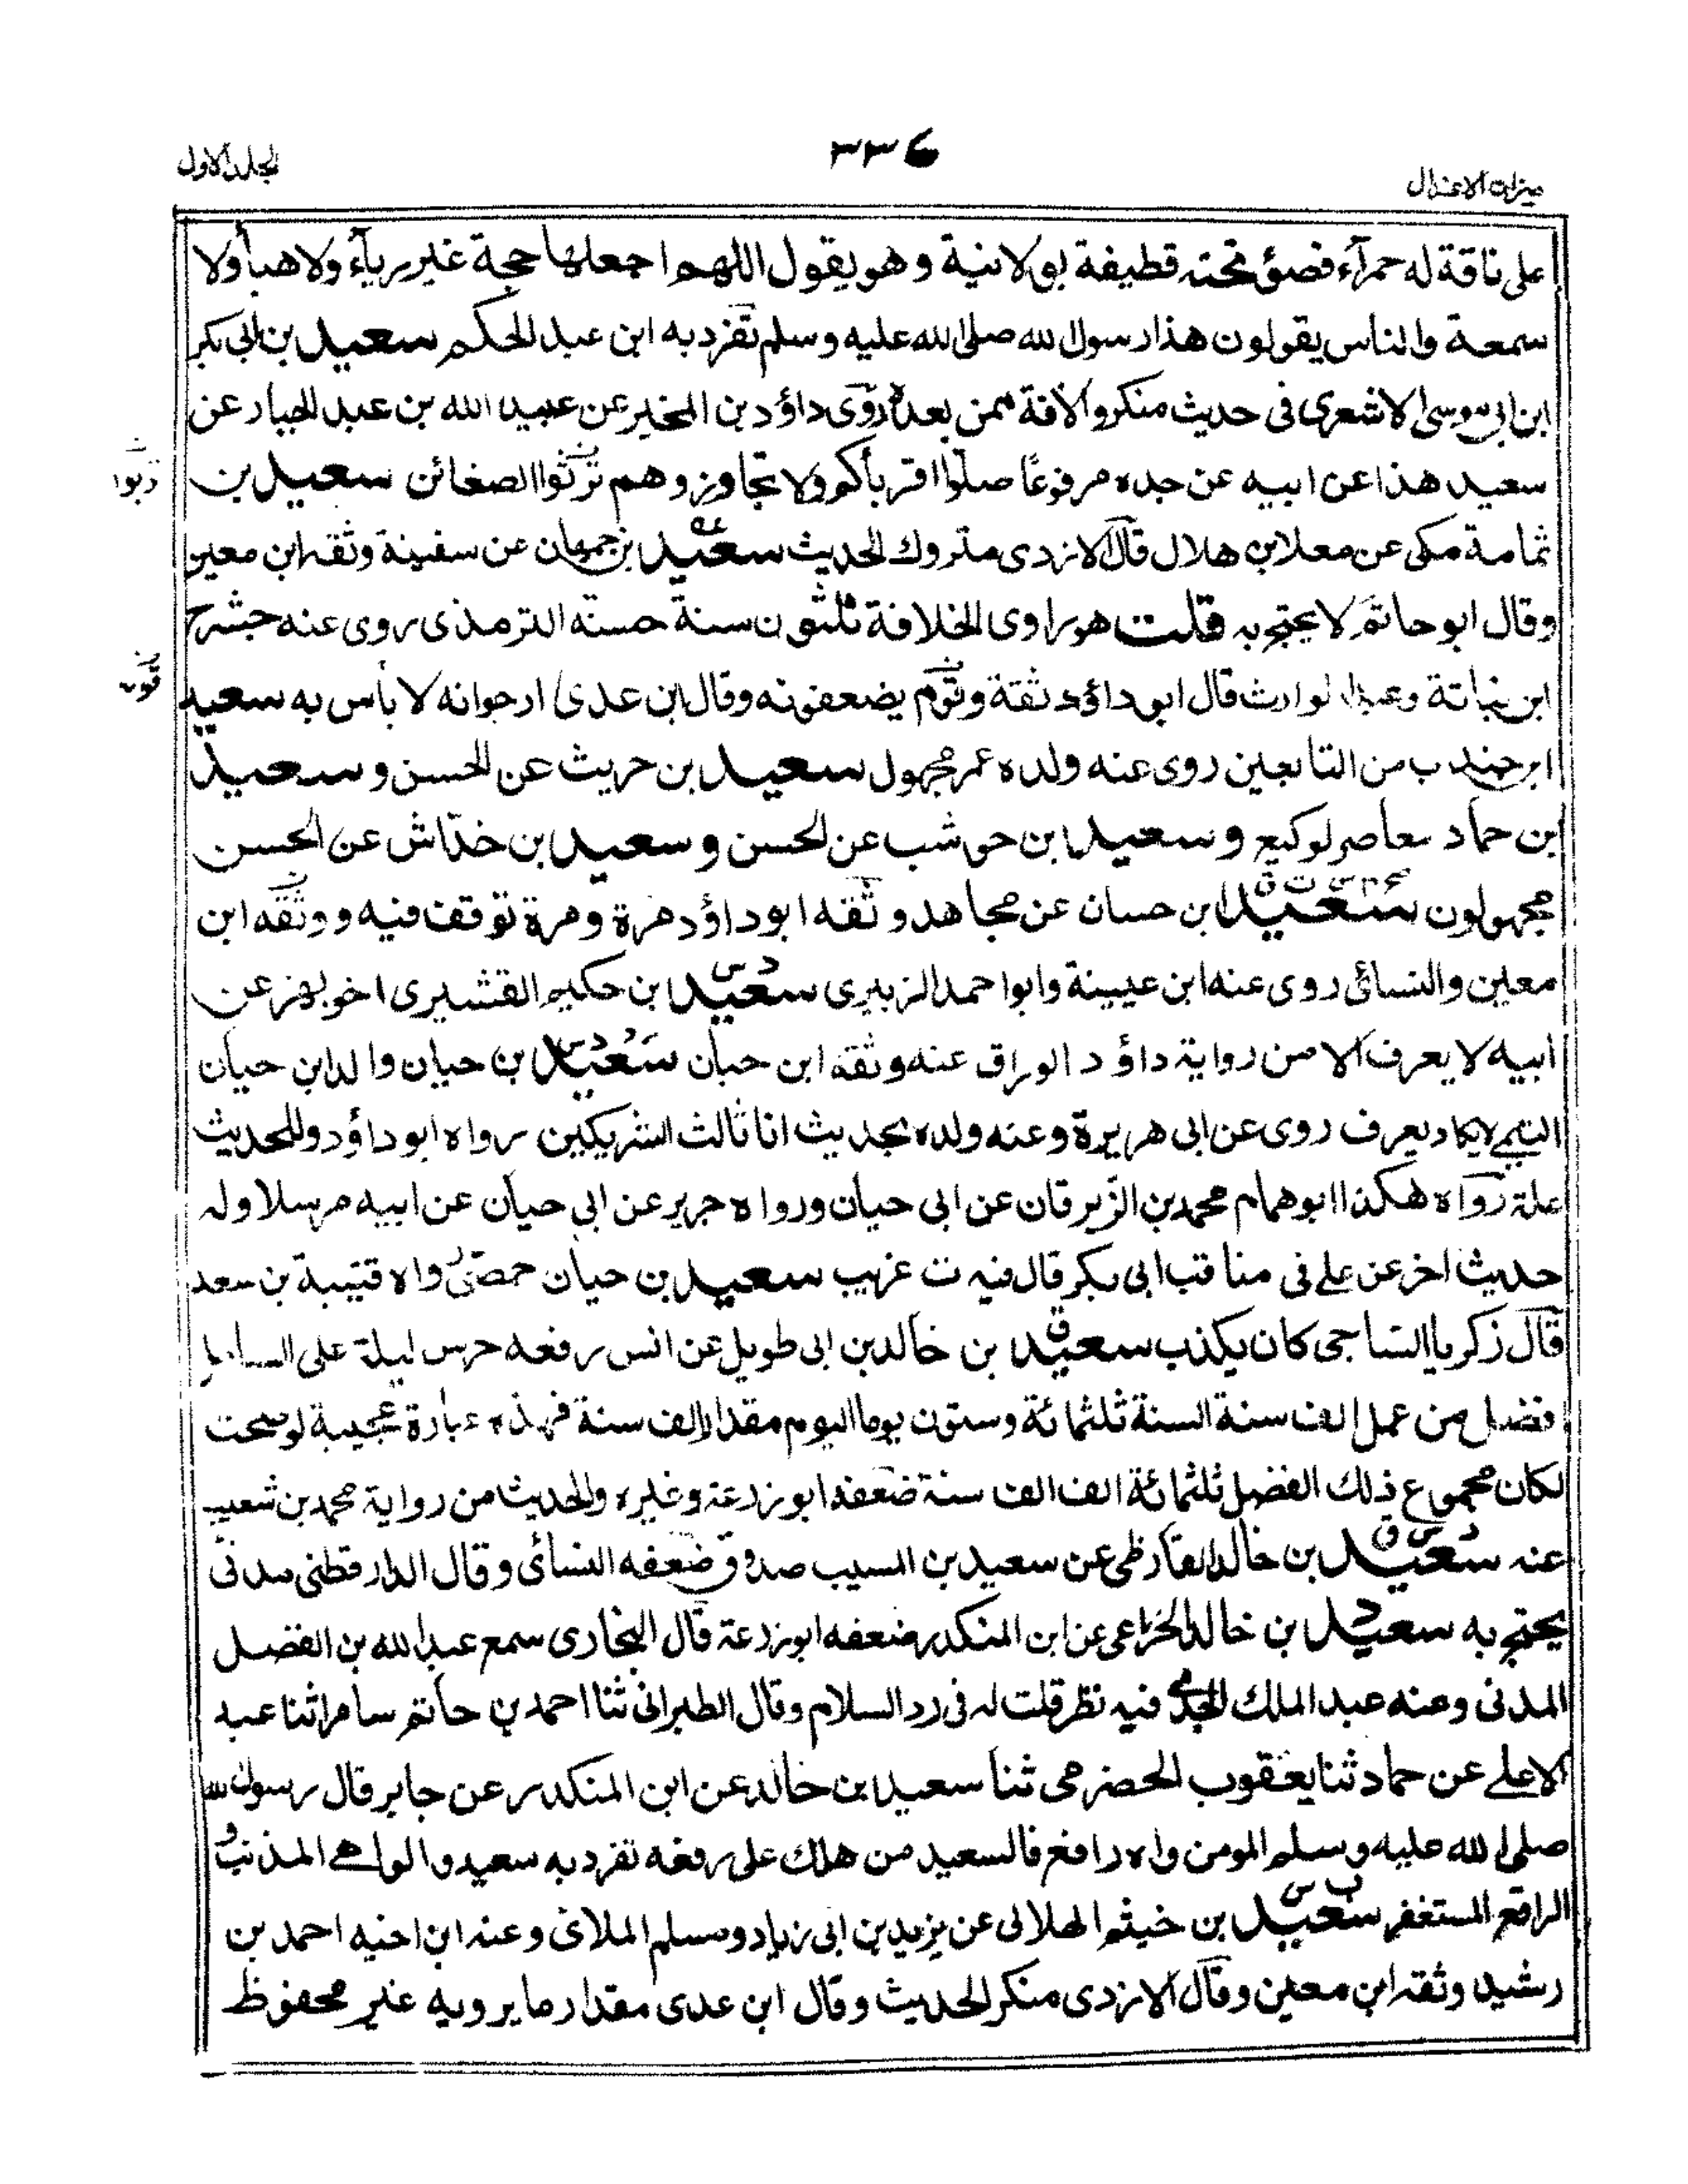 المجلد الاول
٣٣٦
ميزان الاعتدال
على ناقة له حمرآء فصوى تحته قطيفة بولانية وهو يقول اللهم اجعلها حجة غير رياء ولا هبأ ولا
سمعة والناس يقولون هذا رسول الله صلى الله عليه وسلم تفرد به ابن عبد الحكم سعيد بن ابى بكر
ابن ابى موسى الاشعرى فى حديث منكر والافة ممن بعده روى داؤد بن المخبر عن عبيد الله بن عبد الجبار عن
سعيد هذا عن ابيه عن جده مرفوعًا صلّوا اقربأكم ولا تجاوزوهم ترثوا الضغائن سعيد بن
ثمامة مكى عن معلا بن هلال قال الازدى متروك الحديث سعيد بن جمهان عن سفينة وثقه ابن معين
وقال ابو حاتم لا يحتج به قلت هو راوى الخلافة ثلثون سنة حسنه الترمذى روى عنه حشرج
ابن نباتة وعبد الوارث قال ابو داؤد ثقة وقوم يضعفونه وقال ابن عدى ارجوانه لا بأس به سعيد
ابن جندب من التابعين روى عنه ولده عمر مجهول سعيد بن حريث عن الحسن و سعيد
ابن حماد معاصر لوكيع و سعيد ابن حوشب عن الحسن و سعيد بن خدّاش عن الحسن
مجهولون سعيد ابن حسان عن مجاهد وثقه ابو داؤد مرة ومرة توقف فيه ووثقه ابن
معين والنسائى روى عنه ابن عيينة وابو احمد الزبيرى سعيد بن حكيم القشيرى اخو بهز عن
ابيه لا يعرف الا من رواية داؤد الوراق عنه وثقه ابن حبان سعيد بن حيان والد ابن حيان
التيمى لا يكاد يعرف روى عن ابى هريرة وعنه ولده بحديث انا ثالث الشريكين رواه ابو داؤد وللحديث
علة رواه هكذا ابو همام محمد بن الزبرقان عن ابى حيان ورواه جرير عن ابى حيان عن ابيه مرسلا وله
حديث اخر عن على فى مناقب ابى بكر قال فيه ت غريب سعيد بن حيان حمصى رواه قتيبة بن سعد
قال زكريا الساجى كان يكذب سعيد بن خالد بن ابى طويل عن انس رفعه حرس ليلة على الساحل
افضل من عمل الف سنة السنة ثلثمائة وستون يوما اليوم مقداره الف سنة فهذه عبارة عجيبة لو صحت
لكان مجموع ذلك الفضل ثلثمائة الف الف سنة ضعفه ابو زرعة وغيره والحديث من رواية محمد بن شعيب
عنه سعيد بن خالد القارظى عن سعيد بن المسيب صدوق ضعفه النسائى وقال الدارقطنى مدنى
يحتج به سعيد بن خالد الخزاعى عن ابن المنكدر ضعفه ابو زرعة قال البخارى سمع عبد الله بن الفضل
المدنى وعنه عبد الملك الجدى فيه نظر قلت له فى رد السلام وقال الطبرانى ثنا احمد بن حاتم سامرا ثنا عبد
الاعلے عن حماد ثنا يعقوب الحضرمى ثنا سعيد بن خالد عن ابن المنكدر عن جابر قال رسول الله
صلى الله عليه وسلم المومن واه رافع فالسعيد من هلك على رفعه تفرد به سعيد والواهے المذنب و
الراقع المستغفر سعيد بن خيثم الهلالى عن يزيد بن ابى زياد ومسلم الملائى وعنه ابن اخيه احمد بن
رشيد وثقه ابن معين وقال الازدى منكر الحديث وقال ابن عدى مقدار ما يرويه غير محفوظ